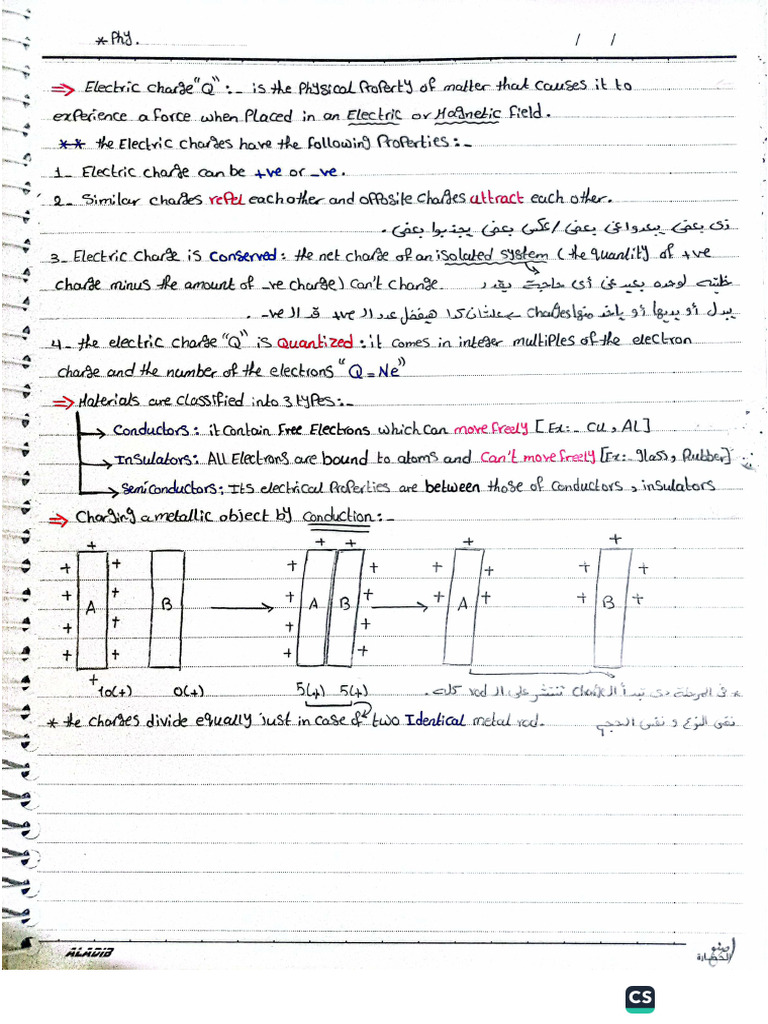 * Phy. / /
⇒ Electric charge "Q" :- is the Physical Property of matter that causes it to
experience a force when Placed in an Electric or Magnetic field.
** the Electric charges have the following Properties :-
1- Electric charge can be +ve or -ve.
2- Similar charges repel each other and opposite charges attract each other.
زى بعض يبعدوا عن بعض / عكس بعض يجذبوا بعض.
3- Electric Charge is Conserved: the net charge of an isolated system (the quantity of +ve
charge minus the amount of -ve charge) Can't Change. بعيد عن أى حاجة يقدر
يبدل أو يديها أو ياخد منها charges علشان كدا هيفضل عدد ال +ve قد ال -ve.
4- the electric charge "Q" is Quantized: it comes in integer multiples of the electron
charge and the number of the electrons "Q = Ne"
⇒ Materials are classified into 3 types:-
Conductors: it contain Free Electrons which can move freely [Ex:- Cu, AL]
Insulators: All Electrons are bound to atoms and Can't move freely [Ex: glass, Rubber]
Semiconductors: Its electrical Properties are between those of conductors, insulators
⇒ Charging a metallic object by conduction:-
+ + + + +
+ + + + + + + +
A B A B A B
+ + + + + + + +
+ + + +
+ + + +
+
10(+) 0(+) 5(+) 5(+)
* فى المرحلة دى تبدأ ال charge تنتشر على ال rod كله.
* the charges divide equally just in case of two Identical metal rod. نفس النوع و نفس الحجم
ALADIB
CS